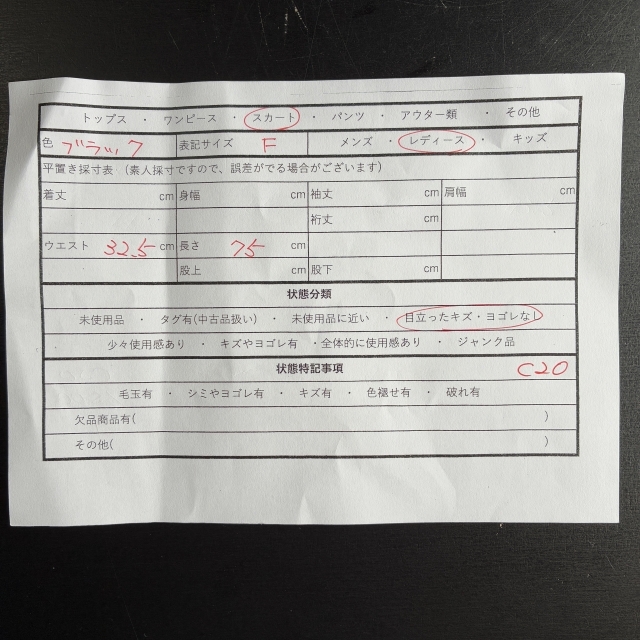 トップス ・ ワンピース ・ スカート ・ パンツ ・ アウター類 ・ その他
色 ブラック 表記サイズ F メンズ ・ レディース ・ キッズ
平置き採寸表 (素人採寸ですので、誤差がでる場合がございます)
着丈 cm 身幅 cm 袖丈 cm 肩幅 cm
裄丈 cm
ウエスト 32.5 cm 長さ 75 cm
股上 cm 股下 cm
状態分類
未使用品 ・ タグ有(中古品扱い) ・ 未使用品に近い ・ 目立ったキズ・ヨゴレなし
少々使用感あり ・ キズやヨゴレ有 ・全体的に使用感あり ・ ジャンク品
状態特記事項 C20
毛玉有 ・ シミやヨゴレ有 ・ キズ有 ・ 色褪せ有 ・ 破れ有
欠品商品有( )
その他( )